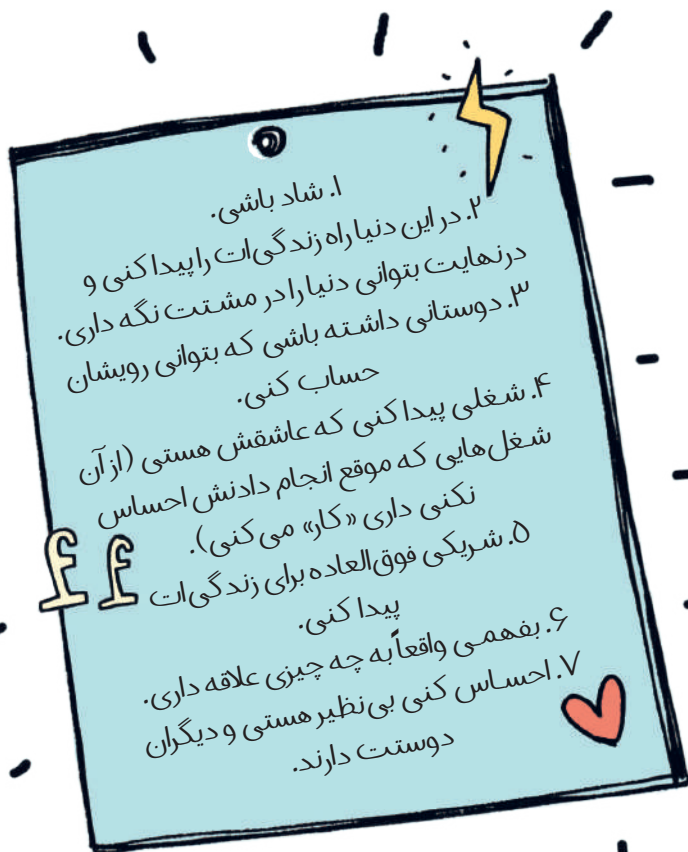 ۱. شاد باشی.
۲. در این دنیا راه زندگی‌ات را پیدا کنی و
درنهایت بتوانی دنیا را در مشتت نگه داری.
۳. دوستانی داشته باشی که بتوانی رویشان
حساب کنی.
۴. شغلی پیدا کنی که عاشقش هستی (از آن
شغل‌هایی که موقع انجام دادنش احساس
نکنی داری «کار» می‌کنی).
۵. شریکی فوق‌العاده برای زندگی‌ات
پیدا کنی.
۶. بفهمی واقعاً به چه چیزی علاقه داری.
۷. احساس کنی بی‌نظیر هستی و دیگران
دوستت دارند.
££